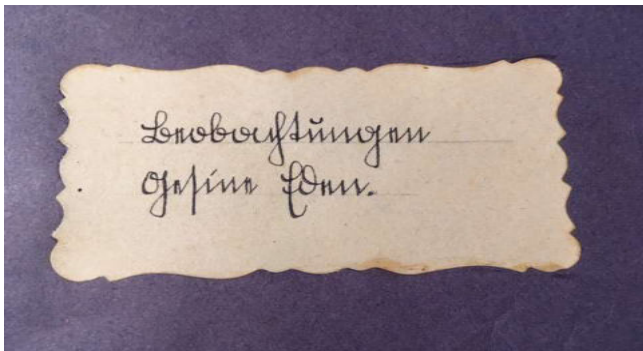 Beobachtungen
Gesine Eden.